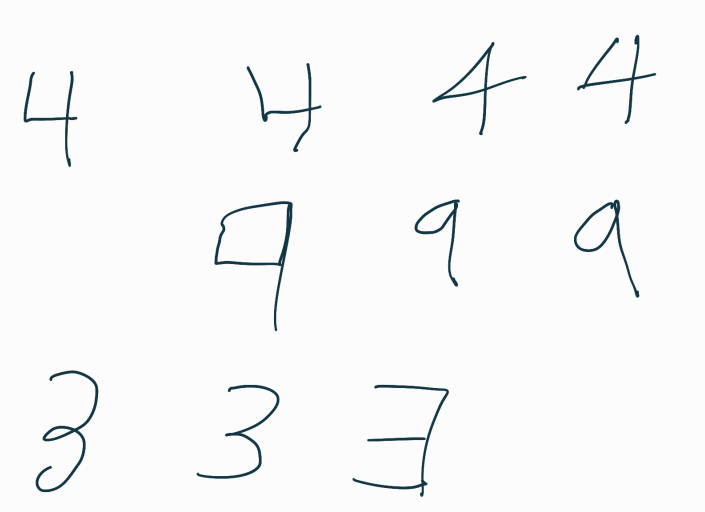 4 4 4 4
9 9 9
3 3 3